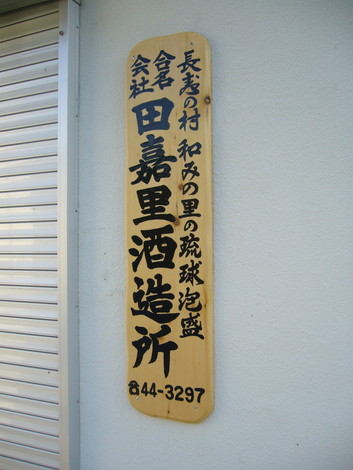 長寿の村 和みの里の琉球泡盛
合名会社
田嘉里酒造所
☎44-3297